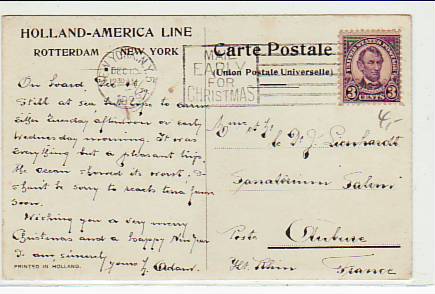 HOLLAND-AMERICA LINE
ROTTERDAM NEW YORK
On board, Dec
Still at sea to
Tuesday afternoon or early
Wednesday morning. It was
everything but a pleasant trip.
The ocean showed its worst, I
shan't be sorry to reach terra firma
soon.
Wishing you a very merry
Christmas and a happy New Year
I am, sincerely
yours
PRINTED IN HOLLAND.
NEW YORK, N.Y.
DEC
MAIL
EARLY
FOR
CHRISTMAS
Carte Postale
(Union Postale Universelle)
UNITED STATES POSTAGE
3 CENTS 3
Dr J. Lienhardt
Sanatorium Salem
Poste
Ht. Rhin France